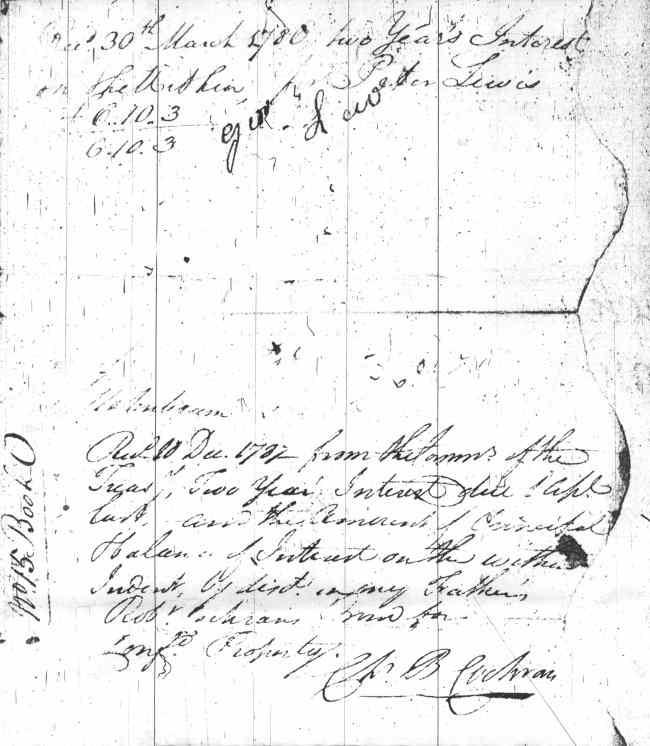 Recd 30th March 1786 two Year's Interest
on the within for Peter Lewis
£ 6.10.3
6.10.3
Lewis
Recd 10 Decr 1787 from the Commrs of the
Treasy, Two Years Interest due 1 Apl
last, and the Amount of Principal
& Balance of Interest on the within
Indent, Discts in my Father's
Robt Cochrans Bond for
Property.
Chs B Cochran
No 15 Book O